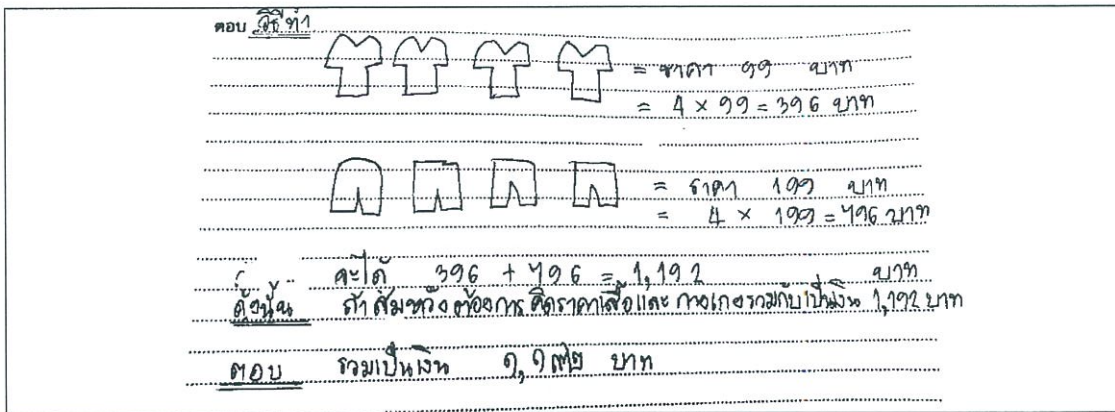 ตอบ วิธีทำ
= ราคา 99 บาท
= 4 × 99 = 396 บาท
= ราคา 199 บาท
= 4 × 199 = 796 บาท
จะได้ 396 + 796 = 1,192 บาท
ดังนั้น ถ้าส้มหวังต้องการคิดราคาเสื้อและกางเกงรวมกันเป็นเงิน 1,192 บาท
ตอบ รวมเป็นเงิน ๑,๑๙๒ บาท